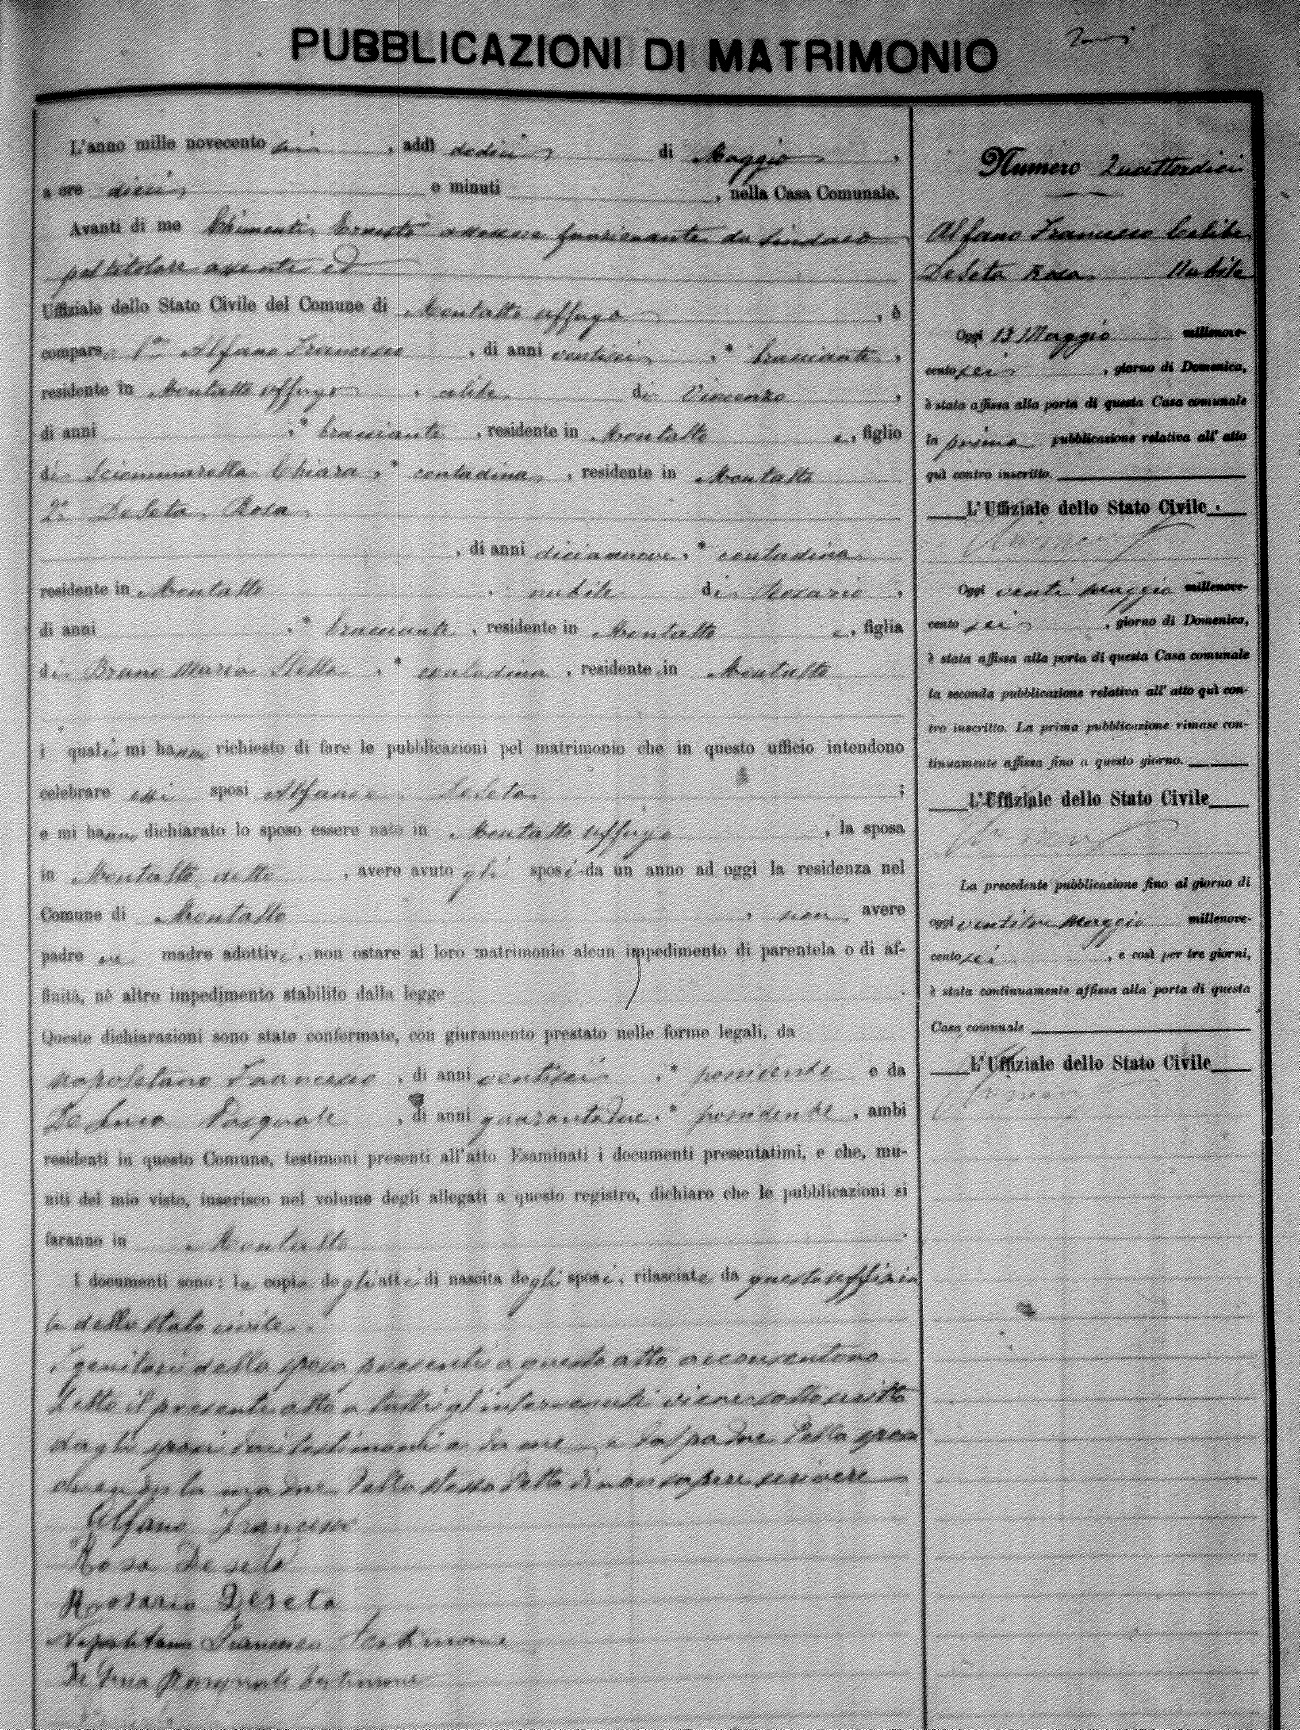 PUBBLICAZIONI DI MATRIMONIO
L'anno mille novecento sei, addì dodici di Maggio,
a ore dieci e minuti , nella Casa Comunale.
Avanti di me Chimenti Ernesto assessore funzionante da sindaco
pel titolare assente ed
Uffiziale dello Stato Civile del Comune di Montalto Uffugo, è
compars 1° Alfano Francesco, di anni ventisei, * bracciante,
residente in Montalto Uffugo, celibe di Vincenzo,
di anni , * bracciante, residente in Montalto e, figlio
di Sciammarella Chiara, * contadina, residente in Montalto
2° DeSeta Rosa
, di anni diciannove, * contadina
residente in Montalto , nubile di Rosario,
di anni , * bracciante, residente in Montalto e, figlia
di Bruno Maria Stella, * contadina, residente in Montalto
i quali mi hanno richiesto di fare le pubblicazioni pel matrimonio che in questo ufficio intendono
celebrare essi sposi Alfano e DeSeta ;
e mi hanno dichiarato lo sposo essere nato in Montalto Uffugo, la sposa
in Montalto detto, avere avuto gli sposi da un anno ad oggi la residenza nel
Comune di Montalto, non avere
padre ne madre adottivi, non ostare al loro matrimonio alcun impedimento di parentela o di af-
finità, nè altro impedimento stabilito dalla legge .
Queste dichiarazioni sono state confermate, con giuramento prestato nelle forme legali, da
Napoletano Francesco, di anni ventisei, * possidente e da
Pasquale, di anni quarantadue, * possidente, ambi
residenti in questo Comune, testimoni presenti all'atto. Esaminati i documenti presentatimi, e che, mu-
niti del mio visto, inserisco nel volume degli allegati a questo registro, dichiaro che le pubblicazioni si
faranno in Montalto .
I documenti sono: le copie degli atti di nascita degli sposi, rilasciate da questo uffizia
le dello stato civile.
I genitori della sposa presenti a questo atto acconsentono
Letto il presente atto a tutti gl'intervenuti viene sottoscritto
dagli sposi dai testimoni e da me e dal padre della sposa
avendo la madre della stessa detto di non sapere scrivere
Alfano Francesco
Rosa Deseta
Rosario Deseta
Napolitano Francesco testimone
Pasquale testimone
Numero Quattordici
Alfano Francesco Celibe
DeSeta Rosa Nubile
Oggi 13 Maggio millenove-
cento sei, giorno di Domenica,
è stata affissa alla porta di questa Casa comunale
la prima pubblicazione relativa all'atto
quì contro inscritto.
L'Uffiziale dello Stato Civile
Chimenti
Oggi venti Maggio millenove-
cento sei, giorno di Domenica,
è stata affissa alla porta di questa Casa comunale
la seconda pubblicazione relativa all'atto quì con-
tro inscritto. La prima pubblicazione rimase con-
tinuamente affissa fino a questo giorno.
L'Uffiziale dello Stato Civile
Chimenti
La precedente pubblicazione fino al giorno di
oggi ventitre Maggio millenove-
cento sei, e così per tre giorni,
è stata continuamente affissa alla porta di questa
Casa comunale
L'Uffiziale dello Stato Civile
Chimenti